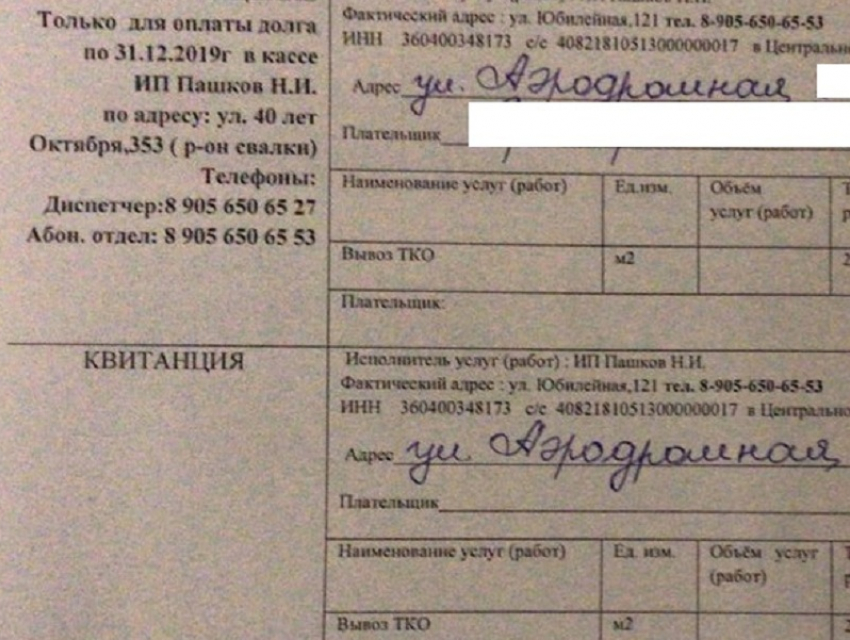 Только для оплаты долга
по 31.12.2019г в кассе
ИП Пашков Н.И.
по адресу: ул. 40 лет
Октября,353 ( р-он свалки)
Телефоны:
Диспетчер:8 905 650 65 27
Абон. отдел: 8 905 650 65 53
Фактический адрес : ул. Юбилейная,121 тел. 8-905-650-65-53
ИНН 360400348173 с/с 40821810513000000017 в Центрально
Адрес ул. Аэродромная
Плательщик
Наименование услуг (работ) Ед.изм. Объём услуг (работ)
Вывоз ТКО м2
Плательщик:
КВИТАНЦИЯ
Исполнитель услуг (работ) : ИП Пашков Н.И.
Фактический адрес : ул. Юбилейная,121 тел. 8-905-650-65-53
ИНН 360400348173 с/с 40821810513000000017 в Центрально
Адрес ул. Аэродромная
Плательщик
Наименование услуг (работ) Ед. изм. Объём услуг (работ)
Вывоз ТКО м2